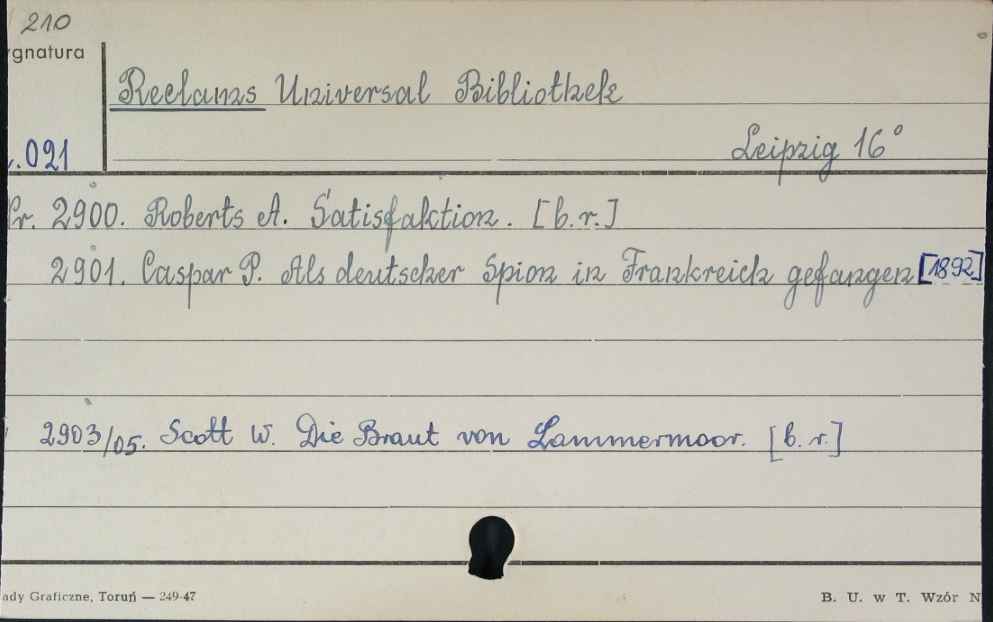 210
ygnatura
Reclams Universal Bibliothek
.021
Leipzig 16°
Nr. 2900. Roberts A. Satisfaktion. [b.r.]
2901. Caspar P. Als deutscher Spion in Frankreich gefangen [1892]
2903/05. Scott W. Die Braut von Lammermoor. [b.r.]
ady Graficzne, Toruń — 249-47
B. U. w T. Wzór N